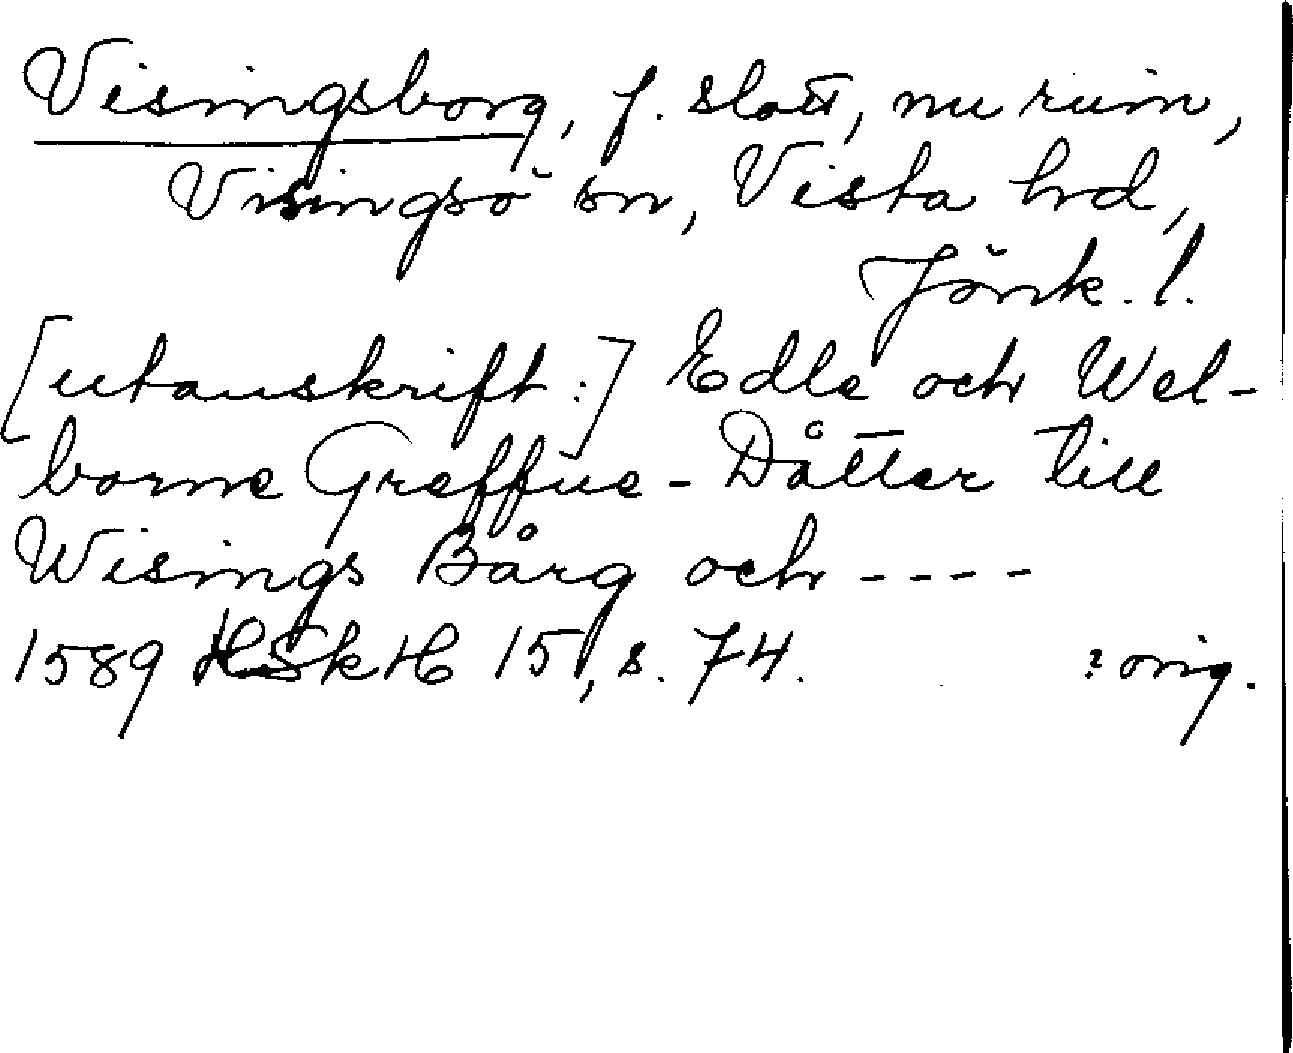 Visingsborg, f. slott, nu ruin,
Visingsö sn, Vista hd,
Jönk. l.
[utanskrift:] Edle och Wel-
borne Greffue-Dåtter till
Wisings Bårg och ----
1589 HSkH 15, s. 74. ? orig.